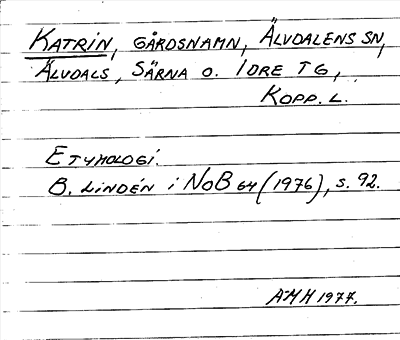 KATRIN, GÅRDSNAMN, ÄLVDALENS SN,
ÄLVDALS, SÄRNA O. IDRE TG,
KOPP. L.
ETYMOLOGI.
B. LINDÉN i NoB 64 (1976), s. 92.
AMH 1977.